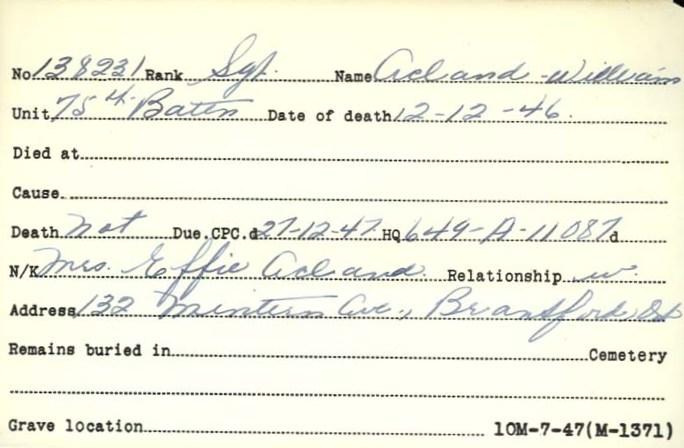 No 138231 Rank Sgt. Name Acland - William
Unit 75th Batn Date of death 12-12-46.
Died at
Cause
Death not Due.CPC.d 27-12-47 HQ 649-A-11087 d
N/K Mrs. Effie Acland. Relationship w.
Address 132 Mintern Ave., Brantford, Ont
Remains buried in Cemetery
Grave location 10M-7-47(M-1371)